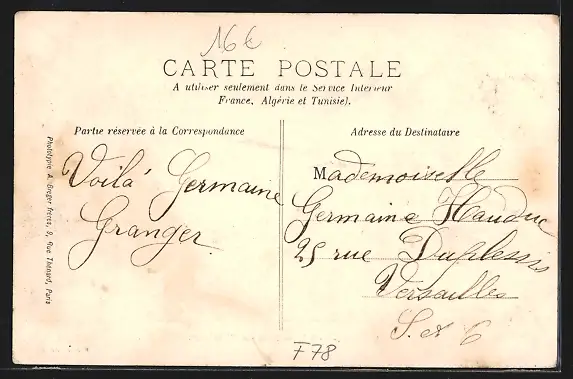 16€
CARTE POSTALE
A utiliser seulement dans le Service Intérieur
France, Algérie et Tunisie).
Partie réservée à la Correspondance
Voilà Germaine
Granger
Adresse du Destinataire
Mademoiselle
Germaine Hauduc
25 rue Duplessis
Versailles
S. et O
Phototypie A. Breger frères, 9, Rue Thénard, Paris
F78